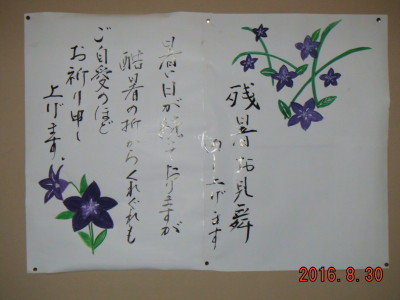 残暑お見舞
申し上げます
暑い日が続いておりますが
酷暑の折からくれぐれも
ご自愛のほど
お祈り申し
上げます。
2016.8.30